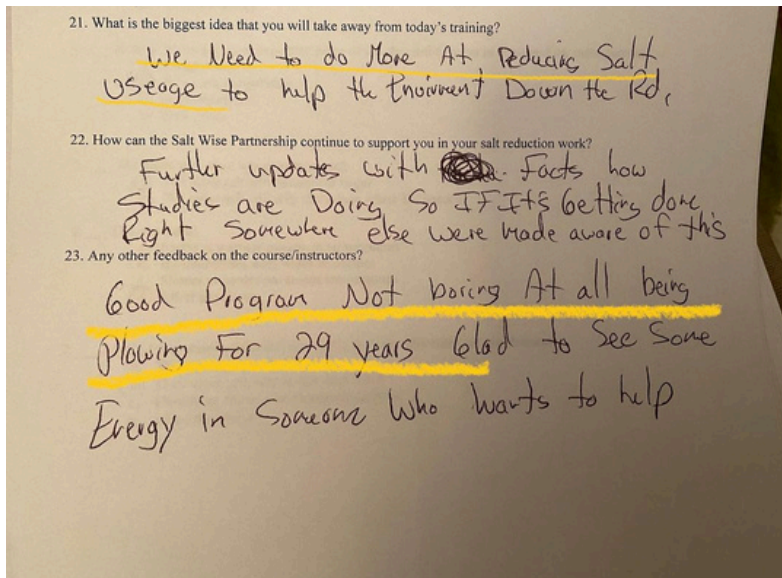 21. What is the biggest idea that you will take away from today's training?
We Need to do More At Reducing Salt
Useage to help the Enoivment Down the Rd,
22. How can the Salt Wise Partnership continue to support you in your salt reduction work?
Further updates with Facts how
Studies are Doing So IF It's Getting done
Right Somewhere else were made aware of this
23. Any other feedback on the course/instructors?
Good Program Not boring At all being
Plowing For 29 years Glad to See Some
Energy in Someone Who wants to help